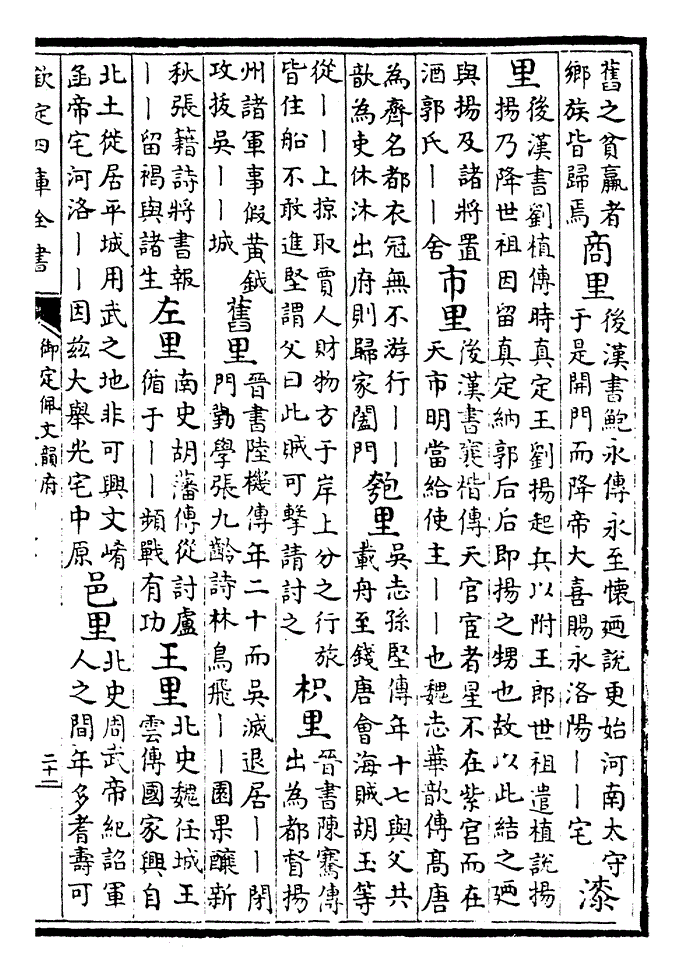 舊之貧羸者
鄉族皆歸焉
商里
後漢書鮑永傳永至懷廼說更始河南太守
于是開門而降帝大喜賜永洛陽丨丨宅
漆
里
後漢書劉植傳時真定王劉揚起兵以附王郎世祖遣植說揚
揚乃降世祖因留真定納郭后后即揚之甥也故以此結之廼
與揚及諸將置
酒郭氏丨丨舍
市里
後漢書襄楷傳天官宦者星不在紫宮而在
天市明當給使主丨丨也魏志華歆傳高唐
為齊名都衣冠無不游行丨丨
歆為吏休沐出府則歸家闔門
匏里
吳志孫堅傳年十七與父共
載舟至錢唐會海賊胡玉等
從丨丨上掠取賈人財物方于岸上分之行旅
皆住船不敢進堅謂父曰此賊可擊請討之
枳里
晉書陳騫傳
出為都督揚
州諸軍事假黃鉞
攻拔吳丨丨城
舊里
晉書陸機傳年二十而吳滅退居丨丨閉
門勤學張九齡詩林鳥飛丨丨園果釀新
秋張籍詩將書報
丨丨留褐與諸生
左里
南史胡藩傳從討盧
循于丨丨頻戰有功
王里
北史魏任城王
雲傳國家興自
北土徙居平城用武之地非可興文崤
函帝宅河洛丨丨因玆大舉光宅中原
邑里
北史周武帝紀詔軍
人之間年多耆壽可
欽定四庫全書
御定佩文韻府
二十二